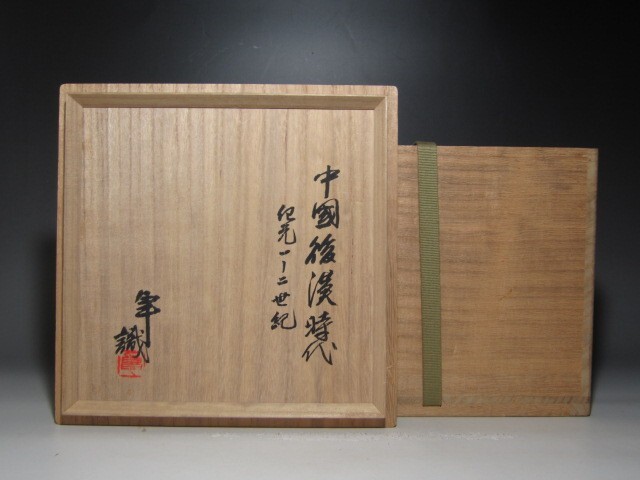 中國後漢時代
紀元一ー二世紀
峯識